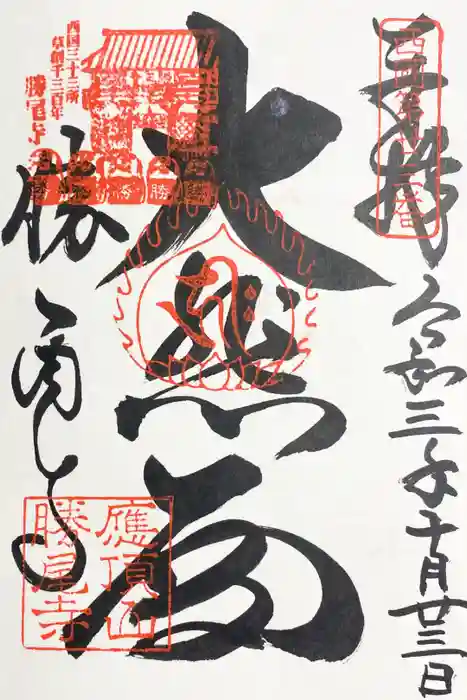 奉拝
西国第廿三番
令和三年十月廿三日
大悲閣
西国三十三所
草創千三百年
勝尾寺
勝
勝尾寺
應頂山
勝尾寺